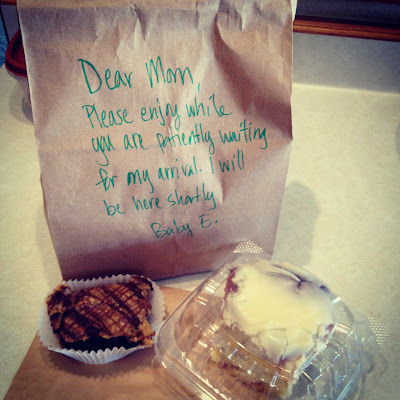 Dear Mom,
Please enjoy while
you are patiently waiting
for my arrival. I will
be here shortly
Baby E.